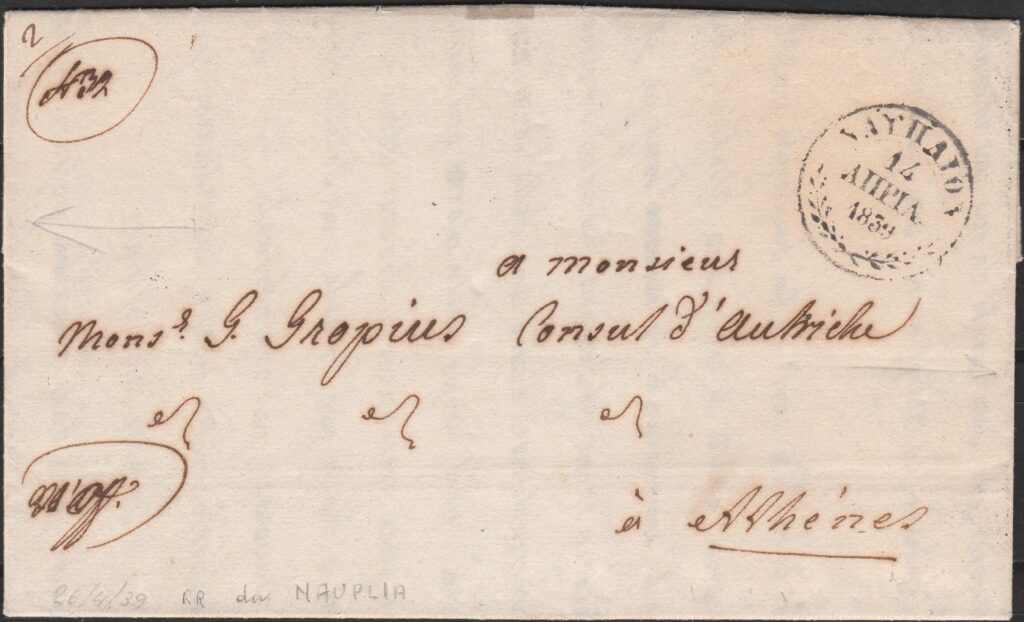 2
N 32
ΝΑΥΠΛΙΟΥ
14
ΑΠΡΙΛ.
1839
a monsieur
Mons.r G. Gropius Consul d'Autriche
à Athénes
26/4/39 RR da NAUPLIA